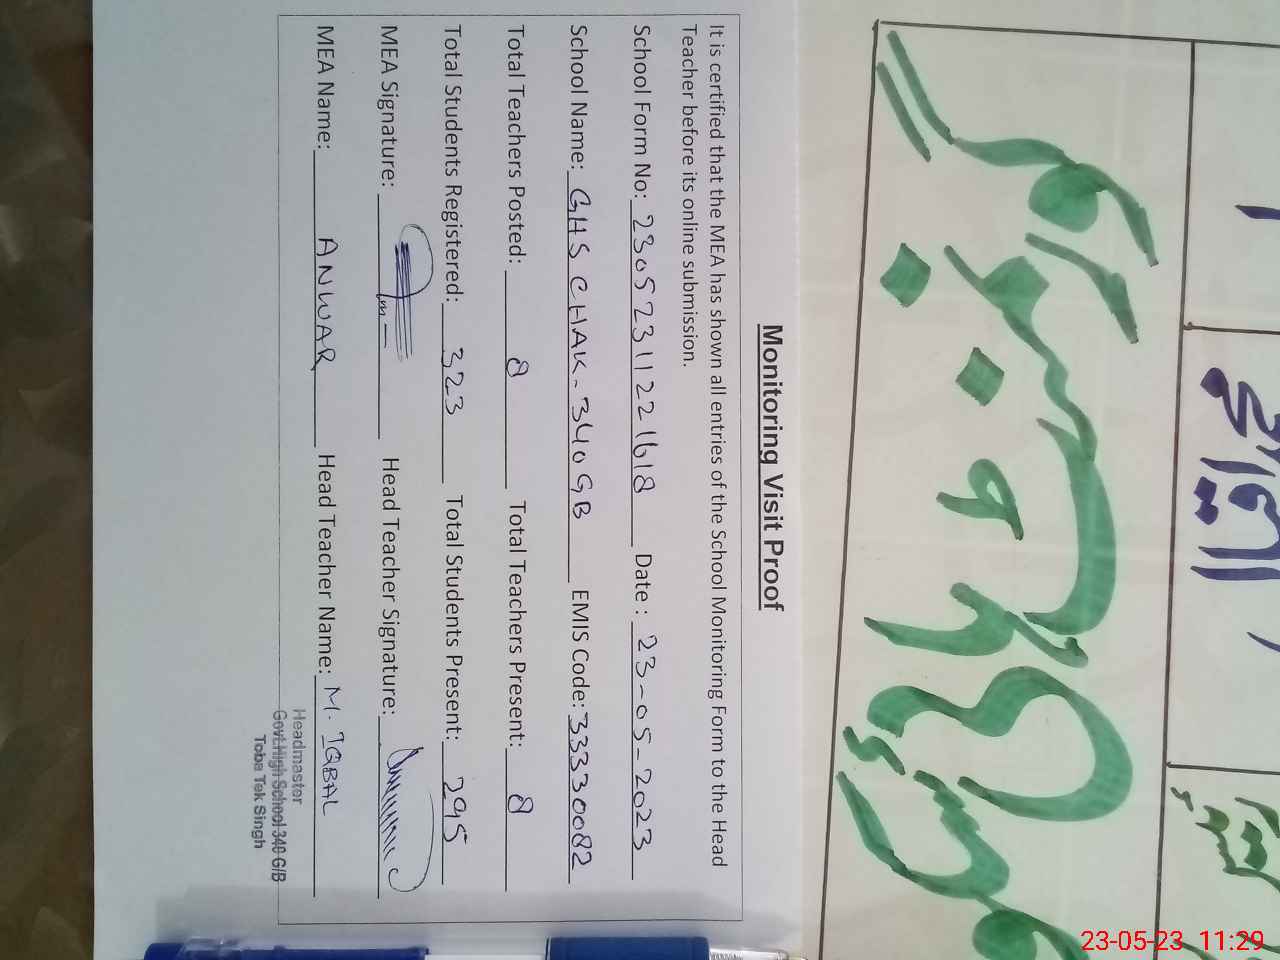 Monitoring Visit Proof
It is certified that the MEA has shown all entries of the School Monitoring Form to the Head
Teacher before its online submission.
School Form No: 23052311221618 Date: 23-05-2023
School Name: GHS CHAK-340GB EMIS Code: 33330082
Total Teachers Posted: 8 Total Teachers Present: 8
Total Students Registered: 323 Total Students Present: 295
MEA Signature: Head Teacher Signature:
MEA Name: ANWAR Head Teacher Name: M. IQBAL
Headmaster
Govt.High School 340 G/B
Toba Tek Singh
23-05-23 11:29